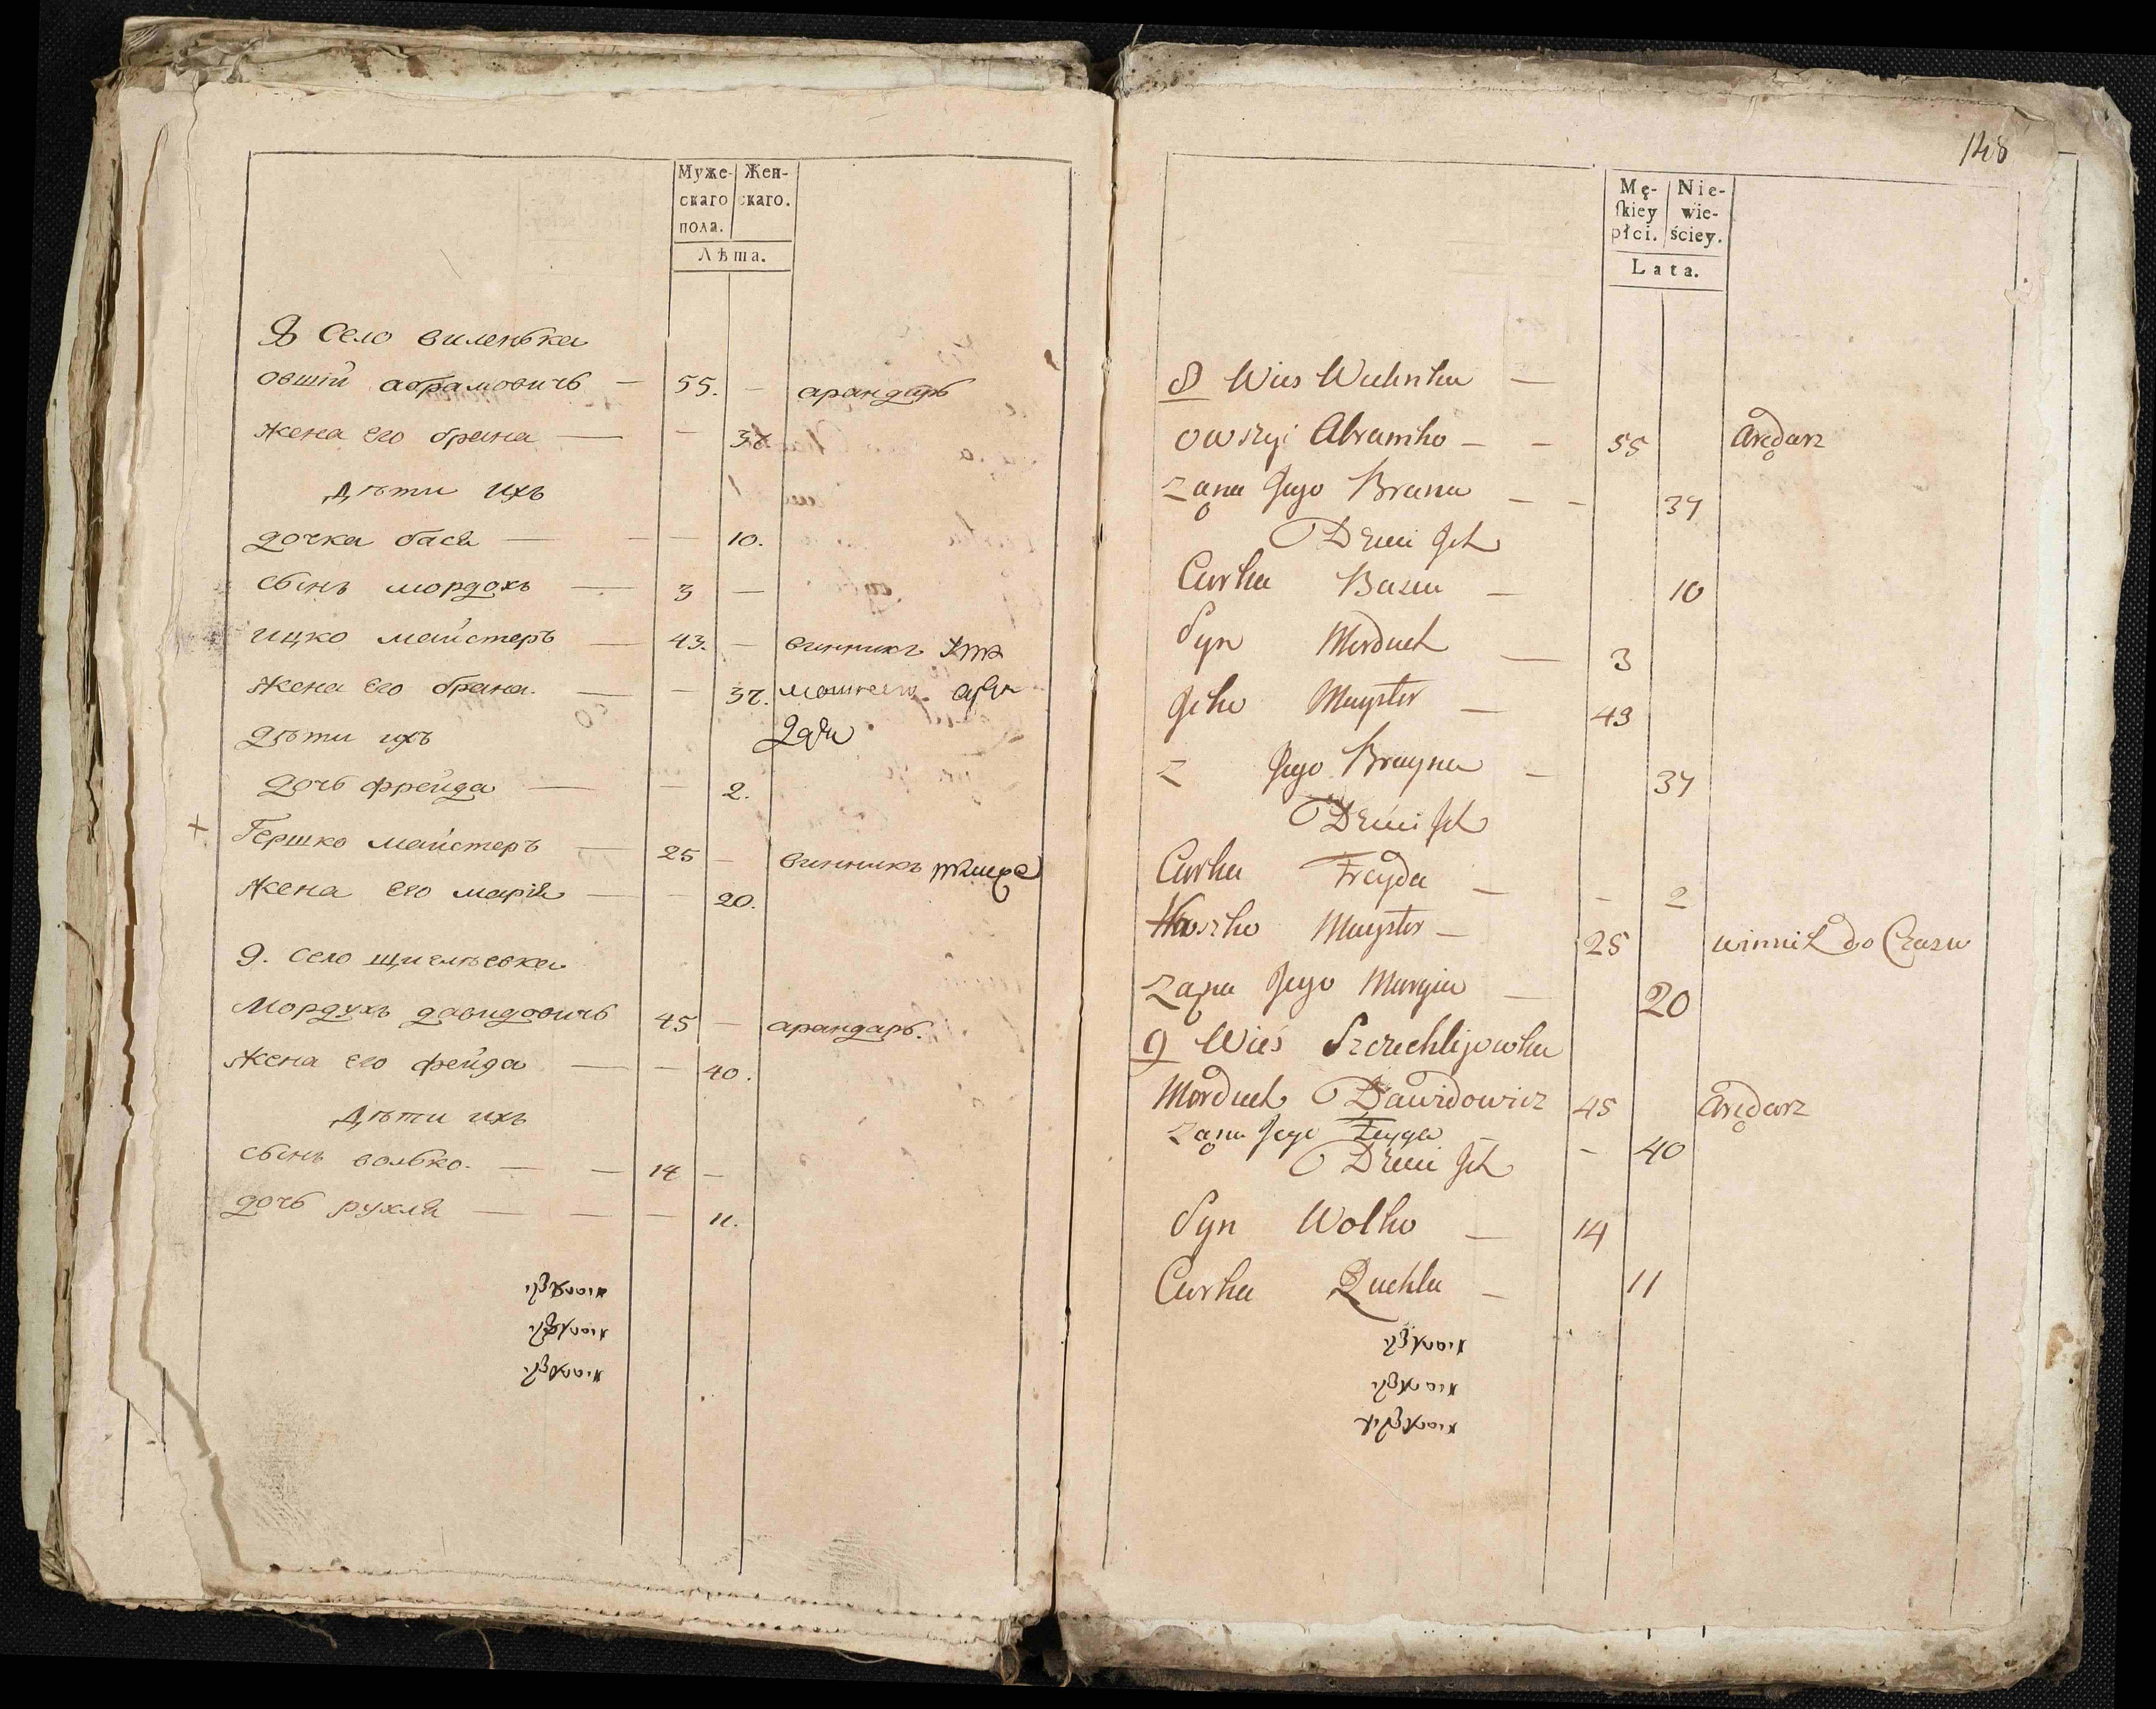 Муже- Жен-
скаго скаго.
пола.
Лѣта.
8 Село виленька
овшій абрамовичь — 55. — арандарь
жена его брана — — 37
дѣти ихъ
дочка бася — — — 10.
сынъ мордохъ — 3 —
ицко майстеръ — 43. — винникъ
жена его брана. — — 37.
дѣти ихъ
дочь фрейда — — 2.
+ Гершко майстеръ — 25 — винникъ
жена его марія — — 20.
9. село
Мордухъ давидовичь 45 — арандарь.
жена его фейга — — 40.
дѣти ихъ
сынъ волько. — — 14 —
дочь рухля — — — 11.
148
Mę- Nie-
ſkiey wie-
płci. ściey.
Lata.
8 Wies Wilenka —
Owszyi Abramko — — 55 Arędarz
Zona Jego Brana — — 37
Dzieci Ich
Curka Basia — 10
Syn Morduch — 3
Icko Mayster — 43
Z Jego Brayna — 37
Dzieci Ich
Curka Freyda — - 2
Herszko Mayster — 25 winnik do Czasu
Zona Jego Maryia — 20
9 Wieś Szczechlijowka
Morduch Dawidowicz 45 Arędarz
Zona Jego Feyga - 40
Dzieci Ich
Syn Wolko — 14
Curka Ruchla — 11